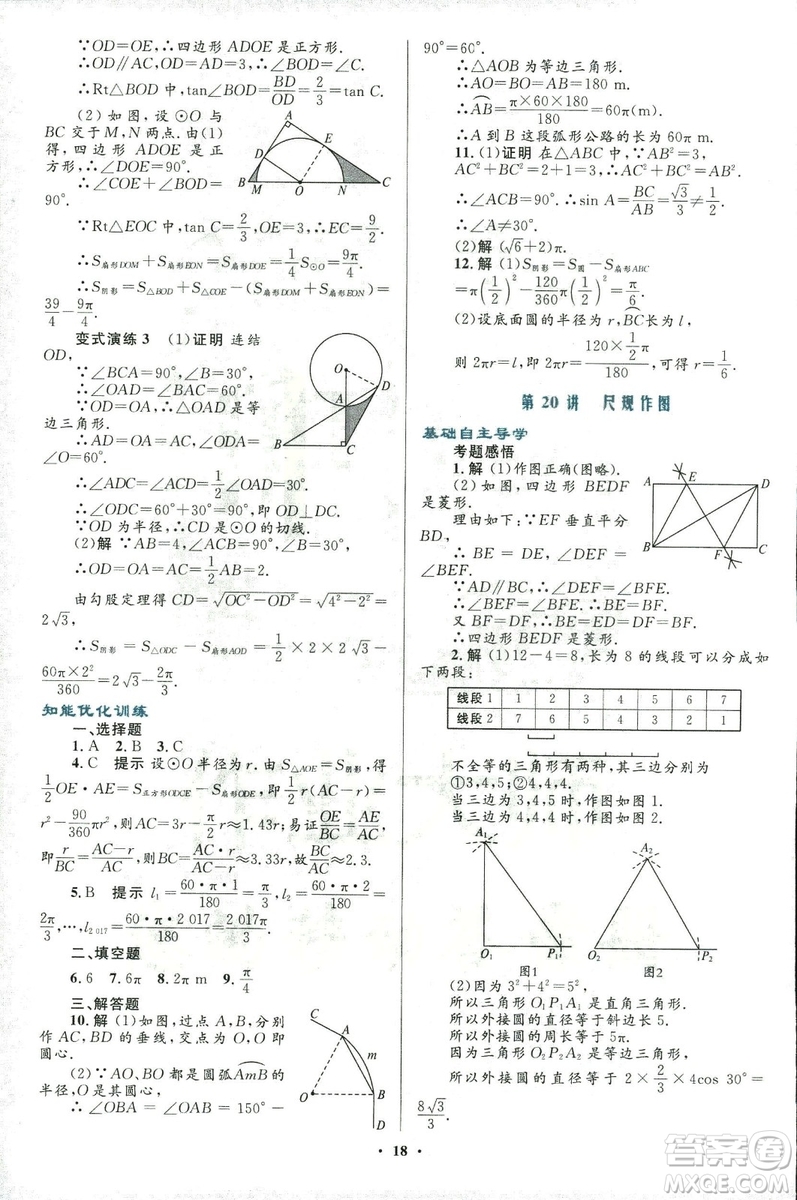 ∵OD=OE,∴四边形 ADOE 是正方形.
∴OD∥AC,OD=AD=3,∴∠BOD=∠C.
∴Rt△BOD 中,tan∠BOD=BD/OD=2/3=tan C.
(2)如图,设⊙O 与
BC 交于 M,N 两点.由(1)
得,四边形 ADOE 是正
方形,∴∠DOE=90°.
∴∠COE+∠BOD=
90°.
A
D
E
B
M
O
N
C
∵Rt△EOC 中,tan C=2/3,OE=3,∴EC=9/2.
∴S扇形DOM+S扇形EON=S扇形DOE=1/4 S⊙O=9/4 π.
∴S阴影=S△BOD+S△COE-(S扇形DOM+S扇形EON)=
39/4-9π/4.
变式演练 3 (1)证明 连结
OD,
∵∠BCA=90°,∠B=30°,
∴∠OAD=∠BAC=60°.
∵OD=OA,∴△OAD 是等
边三角形.
∴∠AOD=60°.
O
A
D
B
C
∴∠ODC=60°+30°=90°,即 OD⊥DC.
∵OD 为半径,∴CD 是⊙O 的切线.
(2)解 ∵AB=4,∠ABC=30°,∴AC=2.
∴OD=OA=AC=1/2 AB=2.
由勾股定理得 CD=√(OC²-OD²)=√(4²-2²)=
2√3,
∴S阴影=S△ODC-S扇形AOD=1/2×2×2√3-
60π×2²/360=2√3-2π/3.
知能优化训练
一、选择题
1.A 2.B 3.C
4.C 提示 设⊙O 半径为 r.由 S△AOE=S阴影,得
1/2 OE·AE=S正方形ODCE-S扇形ODE,即 1/2 r(AC-r)=
r²-90/360 πr²,所以 AC=3r-πr/2≈1.43r;易证 OE/BC=AE/AC,
即 r/BC=(AC-r)/AC,所以 BC=AC·r/(AC-r)≈3.33r.故 BC/AC≈2.3.
5.B 提示 l₁=60·π·1/180=π/3,l₂=60·π·2/180=
2π/3,…,l₂ ₀₁₇=60·π·2 017/180=2 017π/3.
二、填空题
6.6 7.6π 8.2π m 9.π/4
三、解答题
10.解 (1)如图,过点 A,B,分别
作 AC,BD 的垂线,交于点 O,O 即
为圆心.
(2)∵AO,BO 都是圆弧AmB的
半径,O 为其圆心,
∴∠OBA=∠OAB=150°-
C
A
m
B
O
D
90°=60°.
∴△AOB 为等边三角形.
∴AO=BO=AB=180 m.
∴AB=π×60×180/180=60π(m).
∴A 到 B 这段弧形公路的长为 60π m.
11.(1)证明 在△ABC 中,∵AB²=3,
AC²+BC²=2+1=3,∴AC²+BC²=AB².
∴∠ACB=90°.∴sin A=BC/AB=√3/3≠1/2.
∴∠A≠30°.
(2)解 (√6+2)π.
12.解 (1)S阴影=S圆-S扇形ABC
=π(1/2)²-120/360 π(1/2)²=π/6.
(2)设底面圆的半径为 r,BC长为 l,
则 2πr=l,即 2πr=120×1/2 π/180,可得 r=1/6.
第 20 讲 尺规作图
基础自主导学
考题感悟
1.解 (1)作图正确(图略).
(2)如图,四边形 BEDF
是菱形.
理由如下:∵EF 垂直平分
BD,
∴BE=DE,∠DEF
=∠BEF.
A
E
D
B
F
C
∵AD∥BC,∴∠DEF=∠BFE.
∴∠BEF=∠BFE.∴BE=BF.
又 BF=DF,∴BE=ED=DF=BF.
∴四边形 BEDF 是菱形.
2.解 (1)12-4=8,长为 8 的线段可以分成如
下两段:
线段 1 1 2 3 4 5 6 7
线段 2 7 6 5 4 3 2 1
不全等的三角形有两种,其三边分别为
①3,4,5;②4,4,4.
当三边为 3,4,5 时,作图如图 1.
当三边为 4,4,4 时,作图如图 2.
A₁
O₁
P₁
图1
A₂
O₂
P₂
图2
(2)因为 3²+4²=5²,
所以三角形 O₁P₁A₁ 是直角三角形.
所以外接圆的直径等于斜边长 5.
所以外接圆的周长等于 5π.
因为三角形 O₂P₂A₂ 是等边三角形,
所以外接圆的直径等于 2×2/3×4cos 30°=
8√3/3.
· 18 ·
答案圈
MXQE.COM